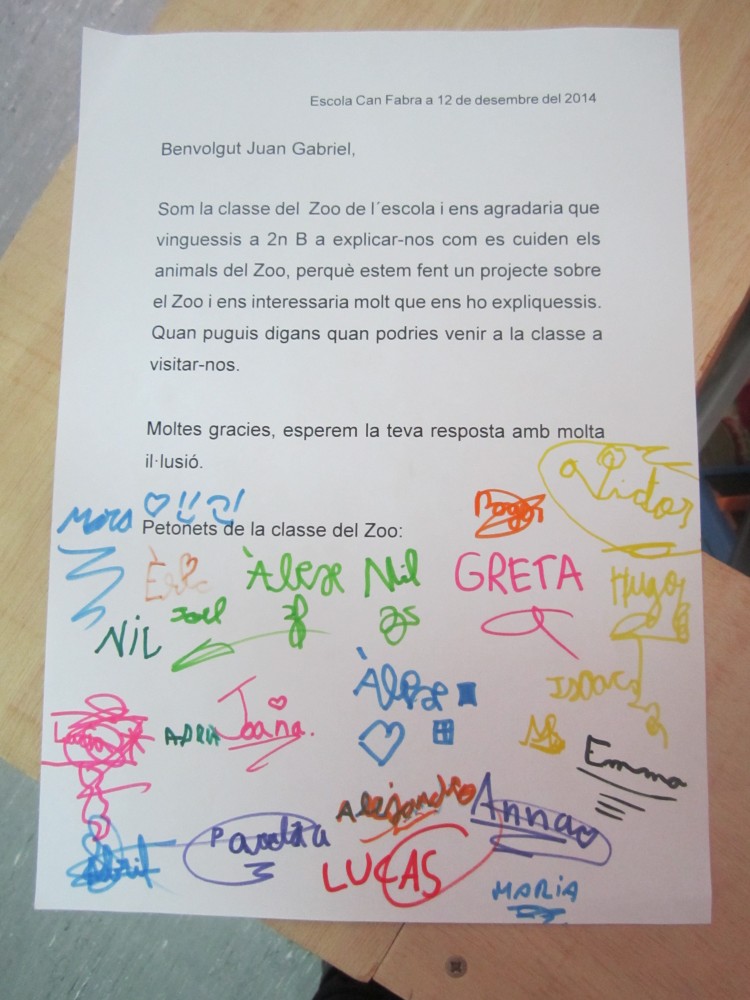 Escola Can Fabra a 12 de desembre del 2014
Benvolgut Juan Gabriel,
Som la classe del Zoo de l´escola i ens agradaria que
vinguessis a 2n B a explicar-nos com es cuiden els
animals del Zoo, perquè estem fent un projecte sobre
el Zoo i ens interessaria molt que ens ho expliquessis.
Quan puguis digans quan podries venir a la classe a
visitar-nos.
Moltes gracies, esperem la teva resposta amb molta
il·lusió.
Petonets de la classe del Zoo:
Victor
Àlex
Nil
GRETA
Hugo
Joel
NIL
Àlex
Isaac
Joana.
ADRIÀ
Emma
Alejandro
Anna
LUCAS
Abril
MARIA